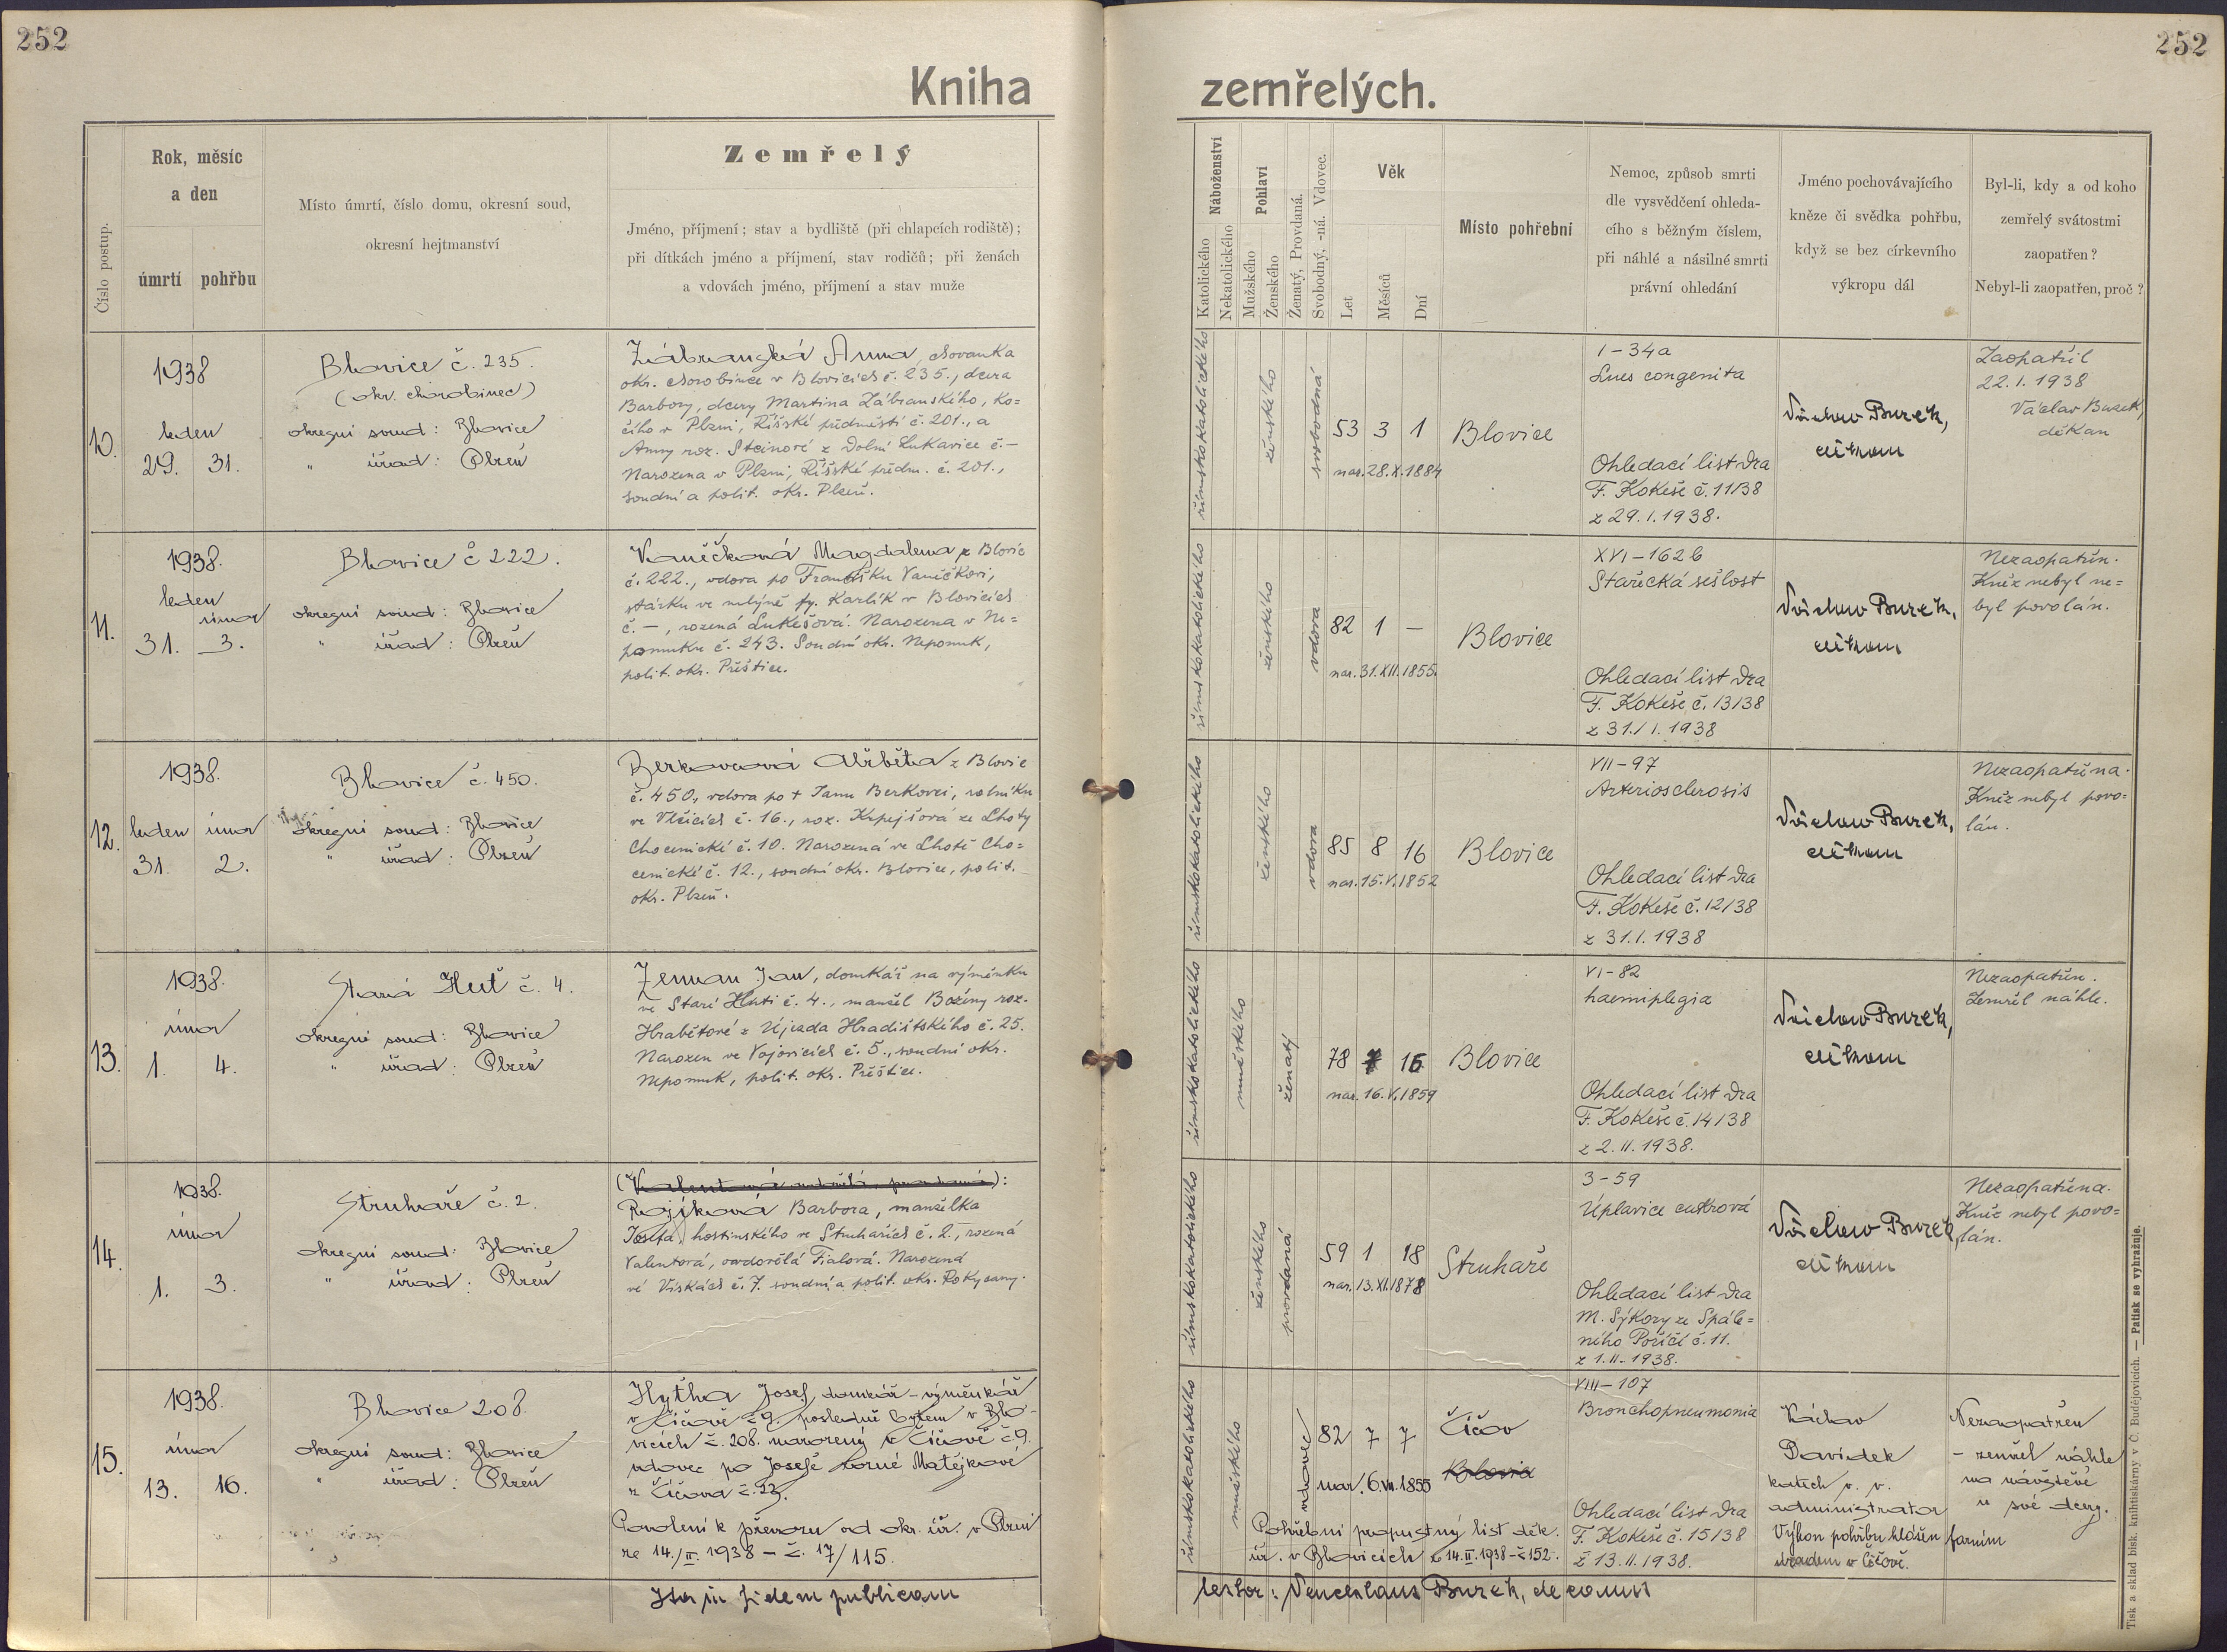 252
252
Kniha
zemřelých.
Číslo postup.
Rok, měsíc
a den
úmrtí
pohřbu
Místo úmrtí, číslo domu, okresní soud,
okresní hejtmanství
Zemřelý
Jméno, příjmení; stav a bydliště (při chlapcích rodiště);
při dítkách jméno a příjmení, stav rodičů; při ženách
a vdovách jméno, příjmení a stav muže
Náboženství
Katolického
Nekatolického
Pohlaví
Mužského
Ženského
Ženatý, Provdaná.
Svobodný, -ná. Vdovec.
Věk
Let
Měsíců
Dní
Místo pohřební
Nemoc, způsob smrti
dle vysvědčení ohleda-
cího s běžným číslem,
při náhlé a násilné smrti
právní ohledání
Jméno pochovávajícího
kněze či svědka pohřbu,
když se bez církevního
výkropu dál
Byl-li, kdy a od koho
zemřelý svátostmi
zaopatřen?
Nebyl-li zaopatřen, proč?
10.
1938
leden
29. 31.
Blovice č. 235.
(okr. chorobinec)
okresní soud: Blovice
" úřad: Plzeň
Zábranská Anna, chovanka
okr. chorobince v Blovicích č. 235., dcera
Barbory, dcery Martina Zábranského, ko=
čího v Plzni, Říšské předměstí č. 201., a
Anny roz. Steinové z Dolní Lukavice č. –
Narozena v Plzni, Říšské předm. č. 201.,
soudní a polit. okr. Plzeň.
římskokatolického
ženského
svobodná
53 3 1
nar. 28. X. 1884
Blovice
I-34a
Lues congenita
Ohledací list Dra
F. Kokeše č. 11/38
z 29. I. 1938.
Václav Burek,
děkan
Zaopatřil
22. I. 1938
Václav Burek,
děkan
11.
1938.
leden
únor
31. 3.
Blovice č 222.
okresní soud: Blovice
" úřad: Plzeň
Vaněčková Magdalena z Blovic
č. 222., vdova po Františku Vaněčkovi,
stárku ve mlýně fy. Karlík v Blovicích
č. –, rozená Lukešová. Narozena v Ne=
pomuku č. 243. Soudní okr. Nepomuk,
polit. okr. Přeštice.
římskokatolického
ženského
vdova
82 1 –
nar. 31. XII. 1855.
Blovice
XVI-162b
Stařecká sešlost
Ohledací list Dra
F. Kokeše č. 13/38
z 31./I. 1938
Václav Burek,
děkan
Nezaopatřen.
Kněz nebyl ne=
byl povolán.
12.
1938.
leden únor
31. 2.
Blovice č. 450.
okresní soud: Blovice
" úřad: Plzeň
Berkovcová Alžběta z Blovic
č. 450., vdova po + Janu Berkovci, rolníku
ve Vlčicích č. 16., roz. Krpejšová ze Lhoty
Chocenické č. 10. Narozená ve Lhotě Cho=
cenické č. 12., soudní okr. Blovice, polit.
okr. Plzeň.
římskokatolického
ženského
vdova
85 8 16
nar. 15. V. 1852
Blovice
VII-97
Arteriosclerosis
Ohledací list Dra
F. Kokeše č. 12/38
z 31. I. 1938
Václav Burek,
děkan
Nezaopatřena.
Kněz nebyl povo=
lán.
13.
1938.
únor
1. 4.
Stará Huť č. 4.
okresní soud: Blovice
" úřad: Plzeň
Zeman Jan, domkář na výměnku
ve Staré Huti č. 4., manžel Boženy roz.
Hrabětové z Újezda Hradišťského č. 25.
Narozen ve Vojovicích č. 5., soudní okr.
Nepomuk, polit. okr. Přeštice.
římskokatolického
mužského
ženatý
78 15
nar. 16. V. 1859
Blovice
VI-82
haemiplegia
Ohledací list Dra
F. Kokeše č. 14/38
z 2. II. 1938.
Václav Burek,
děkan
Nezaopatřen.
Zemřel náhle.
14.
1938.
únor
1. 3.
Struhaře č. 2.
okresní soud: Blovice
" úřad: Plzeň
(Valentová):
Rojíková Barbora, manželka
Josefa, hostinského ve Struhařích č. 2., rozená
Valentová, ovdovělá Fialová. Narozená
ve Vískách č. 7. soudní a polit. okr. Rokycany.
římskokatolického
ženského
provdaná
59 1 18
nar. 13. XI. 1878
Struhaře
3-59
Úplavice cukrová
Ohledací list Dra
M. Sýkory ze Spále=
ného Poříčí č. 11.
z 1. II. 1938.
Václav Burek,
děkan
Nezaopatřena.
Kněz nebyl povo=
lán.
15.
1938.
únor
13. 16.
Blovice 208.
okresní soud: Blovice
" úřad: Plzeň
Hytha Josef, domkář – výměnkář
v Číčově č 9. posledně bytem v Blo-
vicích č. 208. narozený v Číčově č 9.
vdovec po Josefě rozené Matějkové
z Číčova č. 23.
Povolení k převozu od okr. úř. v Plzni
ze 14./II. 1938 – č. 17/115.
římskokatolického
mužského
vdovec
82 7 7
nar. 6. VII. 1855
Číčov
Blovice
Pohřební propustný list děk.
úř. v Blovicích z 14. II. 1938 – č 152.
VIII-107
Bronchopneumonia
Ohledací list Dra
F. Kokeše č. 15/38
z 13. II. 1938.
Václav
Davidek
katech v. v.
administrator
Výkon pohřbu hlášen farním
úřadem v Číčově.
Nezaopatřen
– zemřel náhle
na návštěvě
u své dcery.
Ita in fidem publicam
testor: Venceslaus Burek, decanus
Tisk a sklad bisk. knihtiskárny v Č. Budějovicích. — Patisk se vyhražuje.